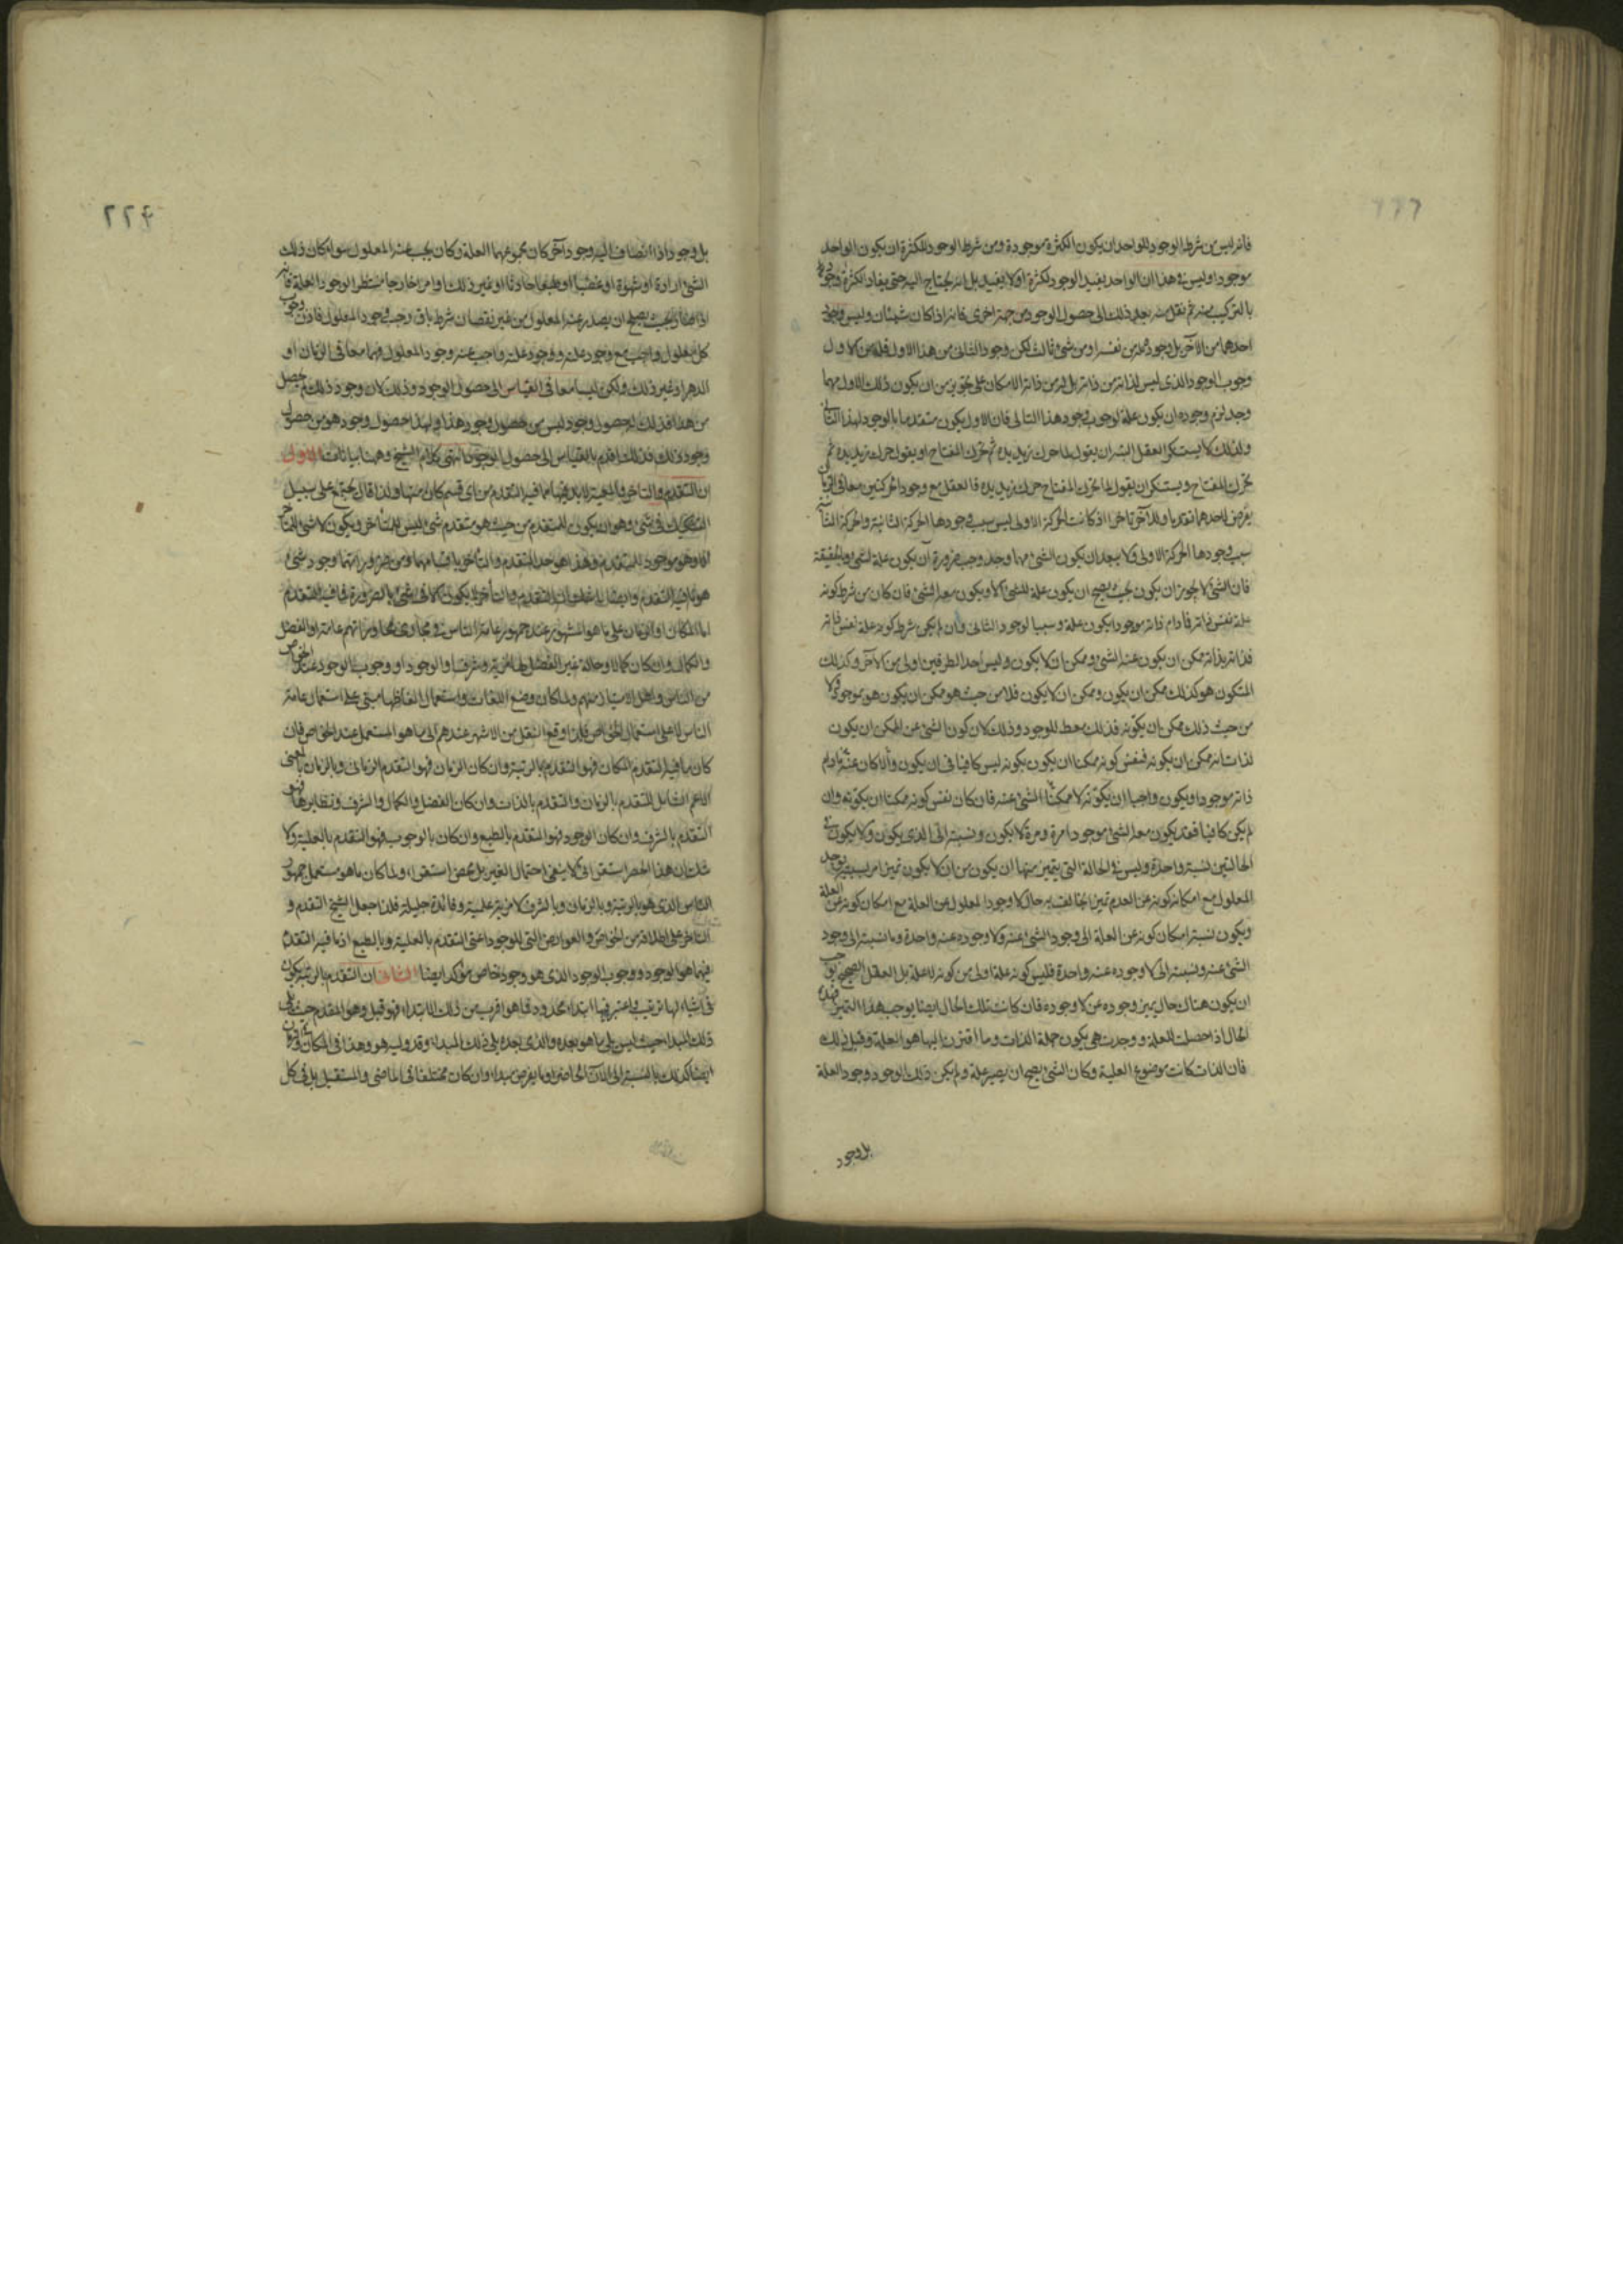 فانه ليس من شرط الوجود للواحد ان يكون الكثرة موجودة ومن شرط الوجود للكثرة ان يكون الواحد
موجودا وليس في هذا ان الواحد يفيد الوجود للكثرة او لا يفيد بل انه يحتاج اليه حتى يفاد للكثرة وجود
بالتركيب منه ثم نقل منه بعد ذلك الى حصول الوجود من جهة اخرى فانه اذا كان شيئان وليس وجود
احدهما من الآخر بل وجوده من نفسه او من شئ ثالث لكن وجود الثانى من هذا الاول فله من الاول
وجوب الوجود الذى ليس لذاته من ذاته بل له من ذاته الامكان على تجويز من ان يكون ذلك الاول مهما
وجد لزم وجوده ان يكون علة لوجوب وجود هذا الثانى فان الاول يكون متقدما بالوجود لهذا الثانى
ولذلك لا يستنكر العقل البتة ان يقول لما حرك زيد يده تحرك المفتاح او يقول حرك زيد يده ثم
تحرك المفتاح ويستنكر ان يقول لما تحرك المفتاح حرك زيد يده فالعقل مع وجود الحركتين معا فى الزمان
يفرض لاحدهما تقدما وللآخر تاخرا اذ كانت الحركة الاولى ليس سبب وجودها الحركة الثانية والحركة الثانية
سبب وجودها الحركة الاولى ولا يبعد ان يكون الشئ مهما وجد وجب ضرورة ان يكون علة لشئ وبالحقيقة
فان الشئ لا يجوز ان يكون بحيث يصح ان يكون علة للشئ الا ويكون معه الشئ فان كان من شرط كونه
علة نفس ذاته فما دام ذاته موجودا يكون علة وسببا لوجود الثانى وان لم يكن شرط كونه علة نفس ذاته
فذاته بذاته ممكن ان يكون عنه الشئ وممكن ان لا يكون وليس احد الطرفين اولى من الآخر وكذلك
المتكون هو كذلك ممكن ان يكون وممكن ان لا يكون فلا من حيث هو ممكن ان يكون هو بموجود ولا
من حيث ذلك ممكن ان يكونه فذلك معط للوجود وذلك لان كون الشئ عن الممكن ان يكون
لذاته انه ممكن ان يكونه فنفس كونه ممكنا ان يكون يكونه ليس كافيا فى ان يكون والا كان عنه مادام
ذاته موجودا ويكون واجبا ان يكونه لا ممكنا الشئ عنه فان كان نفس كونه ممكنا ان يكونه وان
لم يكن كافيا فقد يكون معه الشئ موجودا مرة ومرة لا يكون ونسبته الى الذى يكون ولا يكون فى
الحالتين نسبة واحدة وليس فى الحالة التى يتميز منها ان يكون من ان لا يكون تميز امر بسببه يوجد
المعلول مع امكان كونه عن العدم تميزا يخالف به حال لا وجود المعلول عن العلة مع امكان كونه عن العلة
ويكون نسبة امكان كونه عن العلة الى وجود الشئ عنه ولا وجوده عنه واحدة وما نسبته الى وجود
الشئ عنه ونسبته الى لا وجوده عنه واحدة فليس كونه علة اولى من كونه لا علة بل العقل الصحيح يوجب
ان يكون هناك حال يميز وجوده عن لا وجوده فان كانت تلك الحال ايضا يوجب هذا التميز فهذه
الحال اذا حصلت للعلة ووجدت هى يكون جملة الذات وما اقترن اليها هو العلة وقبل ذلك
فان الذات كانت موضوع العلية وكان الشئ يصح ان يصير علة ولم يكن ذلك الوجود وجود العلة
بل وجود
٢٢٤
بل وجود اذا انضاف اليه وجود آخر كان مجموعهما العلة وكان يجب عنه المعلول سواء كان ذلك
الشئ ارادة او شهوة او غضبا او طبعا حادثا او غير ذلك او امر خارجا منتظرا لوجود العلة فانه
اذا صار بحيث يصلح ان يصدر عنه المعلول من غير نقصان شرط باق وجب وجود المعلول فاذن وجود
كل معلول واجب مع وجود علته ووجود علته واجب عنه وجود المعلول وهما معا فى الزمان او
الدهر او غير ذلك ولكن ليسا معا فى القياس الى حصول الوجود وذلك لان وجود ذلك لم يحصل
من هذا فذلك له حصول وجود ليس من حصول وجود هذا ولهذا حصول وجود هو من حصول
وجود ذلك فذلك اقدم بالقياس الى حصول الوجود انتهى كلام الشيخ وههنا بيانات الاول
ان التقدم والتاخر والمعية لا بد فيها مما فيه التقدم من اى قسم كان منها ولذا قال يجتمع على سبيل
التشكيك فى شئ وهو ان يكون للمتقدم من حيث هو متقدم شئ ليس للمتأخر ويكون لا شئ للمتأخر
الا وهو موجود للمتقدم وهذا هو حد التقدم والتأخر باقسامهما ومن ضرورياتهما وجود شئ
هو ما فيه التقدم وايضا لما علمت ان التقدم والتأخر لا يكون الا فى شئ بالضرورة فما فيه التقدم
اما المكان او الزمان على ما هو المشهور عند جمهور عامة الناس فى مجاوراتهم عامة او الفضل
والكمال وان كان كمالا وحالة غير الفضل لها مزية وشرف او الوجود او وجوب الوجود عند الخواص
من الناس واهل الامتياز منهم ولما كان وضع اللغات واستعمال الفاظها مبنى على استعمال عامة
الناس لا على استعمال الخواص فلذا وقع النقل من الاشهر عندهم الى ما هو المستعمل عند الخواص فان
كان ما فيه التقدم المكان فهو التقدم بالرتبة وان كان الزمان فهو التقدم الزمانى وبالزمان بالمعنى
الاعم الشامل للتقدم بالزمان والتقدم بالذات وان كان الفضل والكمال والشرف ونظايرها فهو
التقدم بالشرف وان كان الوجود فهو التقدم بالطبع وان كان بالوجوب فهو التقدم بالعلية ولا
شك ان هذا الحصر استقرائى لا ينفى احتمال الغير بل محض استقراء ولما كان ما هو مستعمل جمهور
الناس الذى هو بالرتبة وبالزمان وبالشرف لا مزية علمية وفائدة جليلة فلذا جعل الشيخ التقدم و
التاخر على اطلاقه من الخواص والعوارض التى للوجود اعنى التقدم بالعلية وبالطبع اذ ما فيه التقدم
فيهما هو الوجود ووجوب الوجود الذى هو وجود خاص مؤكد ايضا الثانى ان التقدم بالرتبة يكون
فى اشياء لها ترتيب واعتبر فيها ابتداء محدود فما هو اقرب من ذلك الابتداء فهو قبل وهو المتقدم حيث يلى
ذلك المبداء حيث ليس يلى ما هو بعده والذى بعده يلى ذلك المبداء وقد وليه هو وهذا فى المكان وفى الزمان
ايضا كذلك بالنسبة الى الآن الحاضر او ما يفرض مبداء وان كان مختلفا فى الماضى والمستقبل بل فى كل